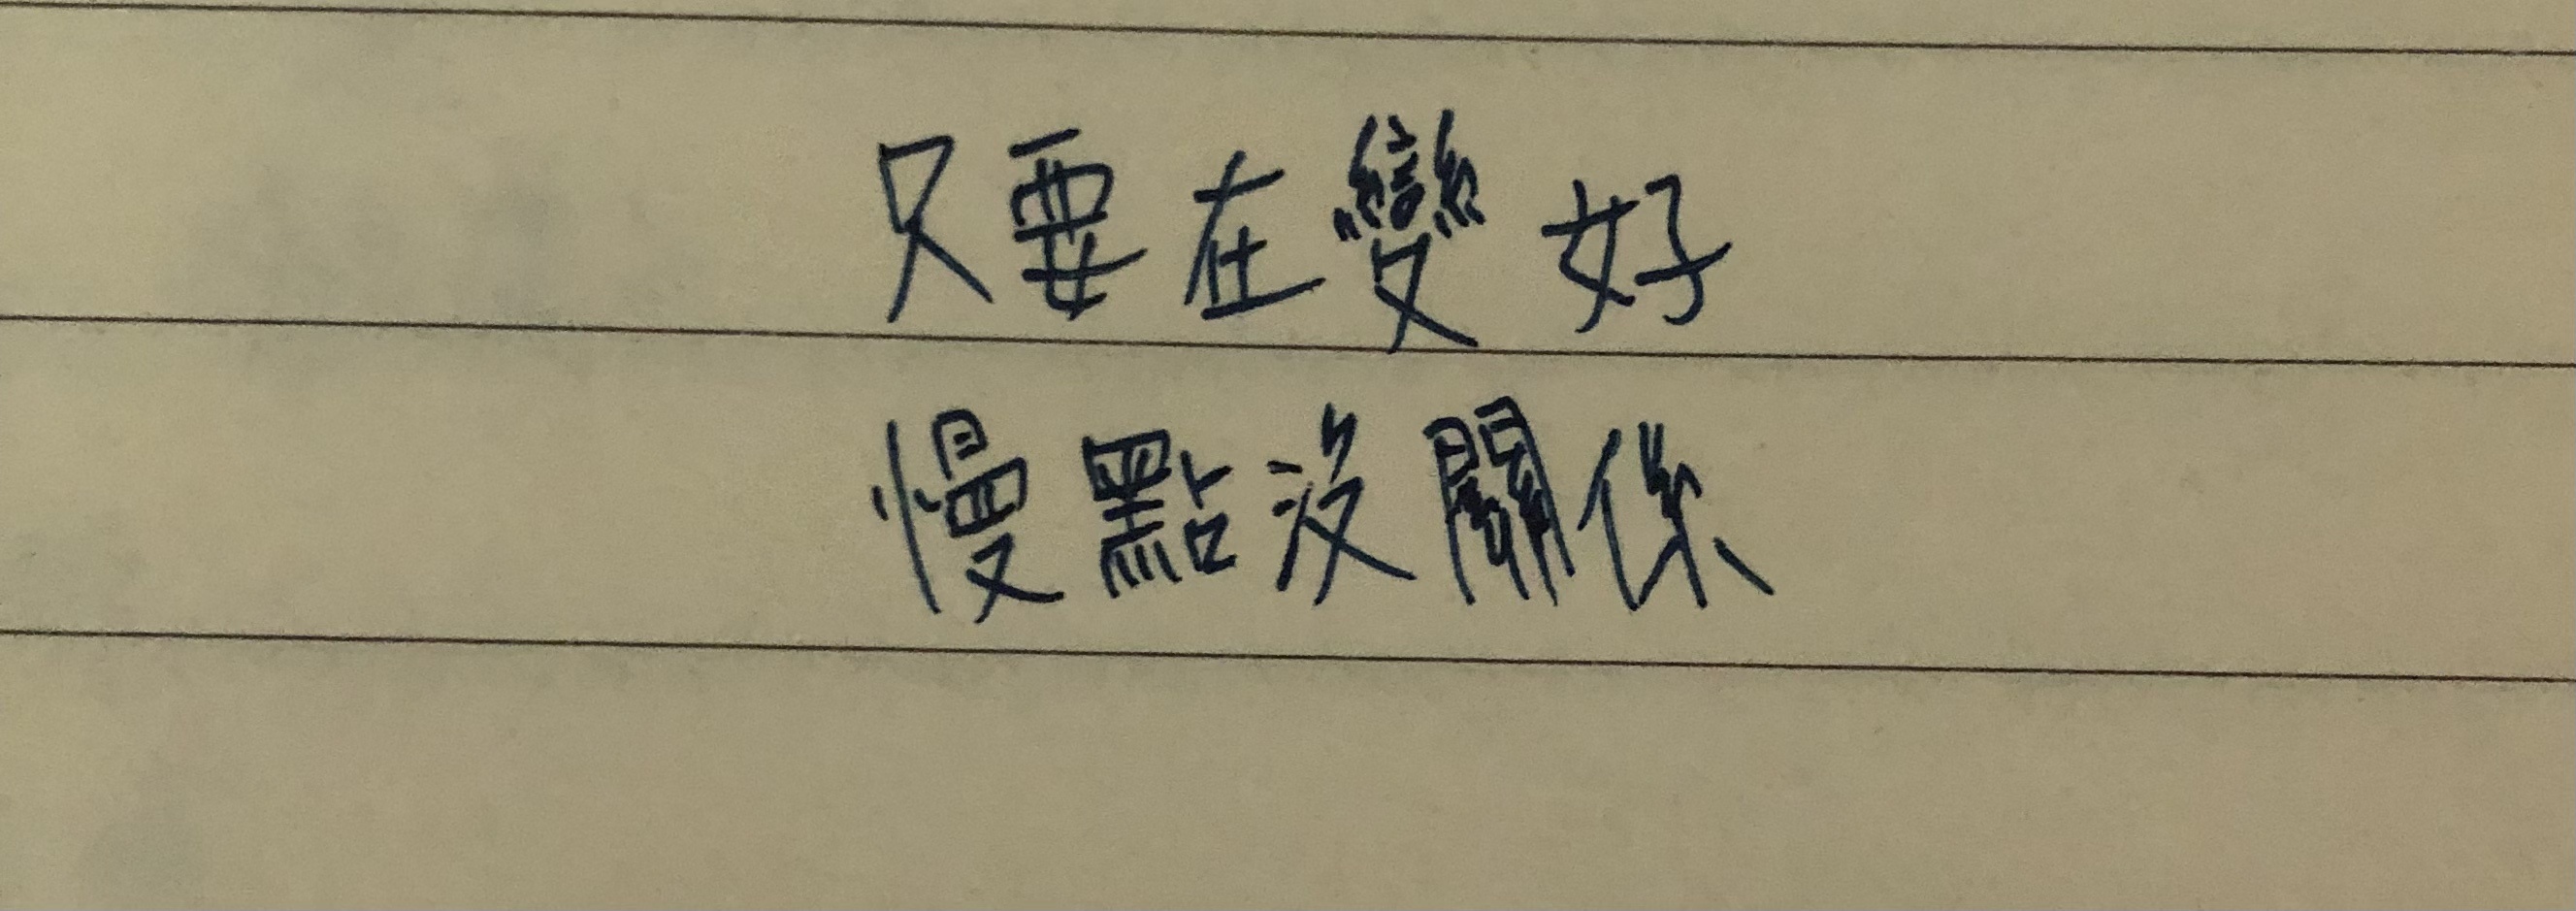 只要在變好
慢點沒關係